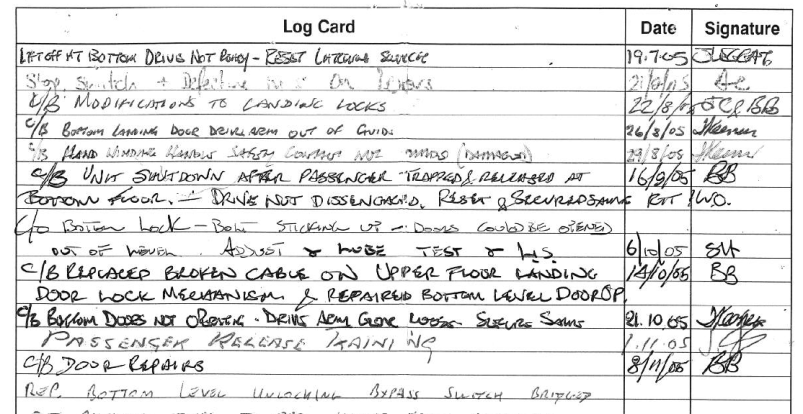 Log Card Date Signature
LIFT OFF AT BOTTOM DRIVE NOT READY - RESET 19.7.05
Stop Switch + Defective
C/B MODIFICATIONS TO LANDING LOCKS 22/8/ & BB
C/B BOTTOM LANDING DOOR DRIVE ARM OUT OF GUIDE 26/8/05
C/B HAND WINDING HANDLE SAFETY CONTACT NOT (DAMAGED) 29/8/05
C/B UNIT SHUTDOWN AFTER PASSENGER TRAPPED & RELEASED AT 16/9/05 BB
BOTTOM FLOOR. - DRIVE NOT DISSENGAGED, RESET & SECURED SAME RTT
C/O BOTTOM LOCK - BOLT STICKING UP - DOORS COULD BE OPENED
OUT OF LEVEL. ADJUST & LUBE TEST & L.I.S. 6/10/05
C/B REPLACED BROKEN CABLE ON UPPER FLOOR LANDING 14/10/05 BB
DOOR LOCK MECHANISM & REPAIRED BOTTOM LEVEL DOOR OP.
C/B BOTTOM DOORS NOT OPENING - DRIVE ARM LOOSE - SECURE SAME 21.10.05
PASSENGER RELEASE TRAINING 1.11.05
C/B DOOR REPAIRS 8/11/05 BB
REP. BOTTOM LEVEL UNLOCKING BYPASS SWITCH BRIDGED